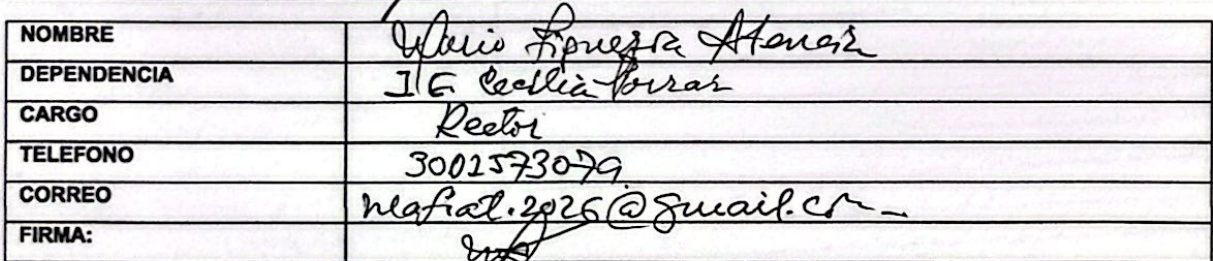 NOMBRE Mario Figueroa Atencia
DEPENDENCIA I E Cecilia Porras
CARGO Rector
TELEFONO 3001573079
CORREO mafiat.2026@gmail.com
FIRMA: